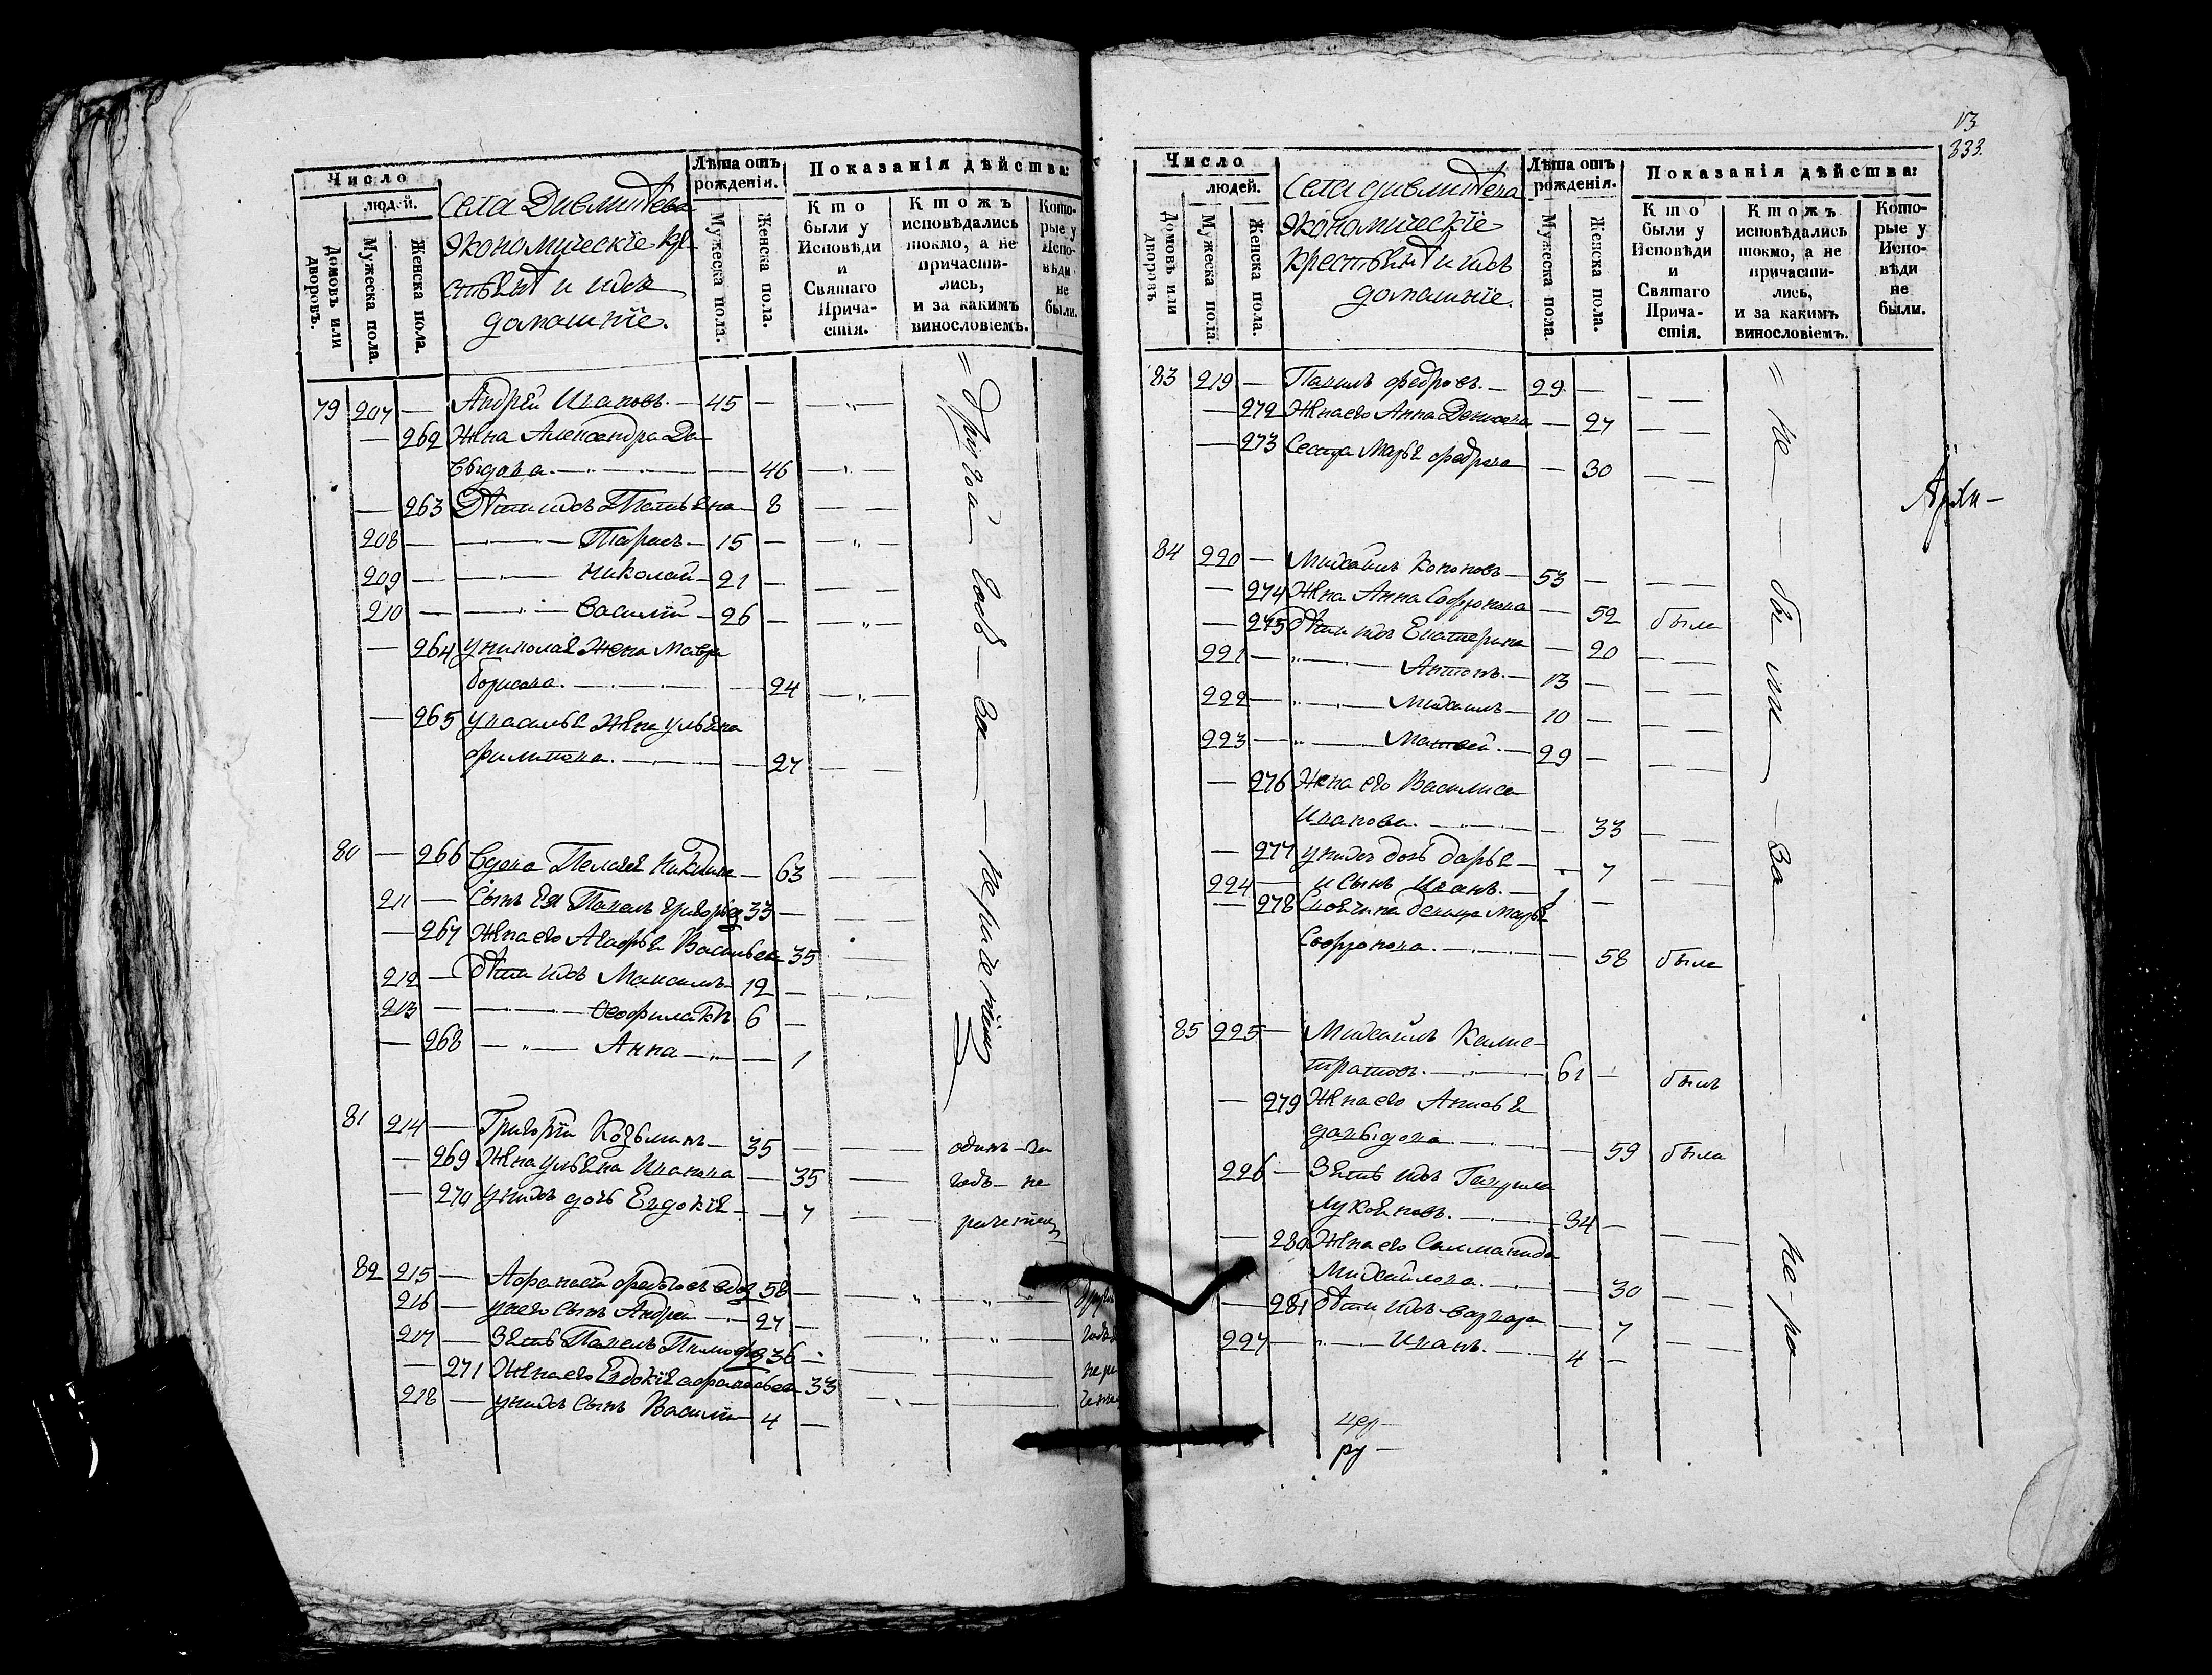 Число
людей.
Домовъ или дворовъ.
Мужеска пола.
Женска пола.
Села Дивлитева
экономическіе кре
стьянѣ и ихъ
домашніе.
Лѣта отъ рожденія.
Мужеска пола.
Женска пола.
Показанія дѣйства:
Кто были у Исповѣди и Святаго Причастія.
Ктожъ исповѣдались токмо, а не причастились, и за какимъ винословіемъ.
Которые у Исповѣди не были.
79 207 — Андрей Ивановъ. — 45 —
— 262 Жена Александра Да
выдова. — 46
— 263 Дѣти ихъ Татьяна — 8
208 — Тарасъ — 15 —
209 — Николай — 21 —
210 — Василій — 26 —
— 264 у николая жена Мавра
борисова. — 24
— 265 у василья жена ульяна
филипова. — 27
= другой годъ — за — нерачениемъ
80 — 266 Вдова Пелагея Никитина — 63
211 — Сынъ Ея Павелъ григорьевъ 33 —
— 267 Жена его Агафья Васильева 35
212 — дѣти ихъ Максимъ — 12 —
213 — Феофилактъ 6 —
— 268 — Анна — 1
81 214 — Григорій Козьминъ — 35 —
— 269 Жена ульяна Иванова — 35
— 270 у нихъ дочь Евдокія — 7
одинъ — за
годъ — не
рачениемъ
82 215 — Афанасій федоровъ вдовъ 58 —
216 — у него Сынъ Андрей — 27 —
217 — Зять Павелъ Тимофеевъ 36 —
— 271 Жена его Евдокія афанасьева 33
218 — у нихъ Сынъ Василій 4 —
13
333.
Число
людей.
Домовъ или дворовъ.
Мужеска пола.
Женска пола.
Села дивлитева
экономическіе
крестьянѣ и ихъ
домашніе.
Лѣта отъ рожденія.
Мужеска пола.
Женска пола.
Показанія дѣйства:
Кто были у Исповѣди и Святаго Причастія.
Ктожъ исповѣдались токмо, а не причастились, и за какимъ винословіемъ.
Которые у Исповѣди не были.
83 219 — Павилъ федоровъ. — 29. —
— 272 Жена его Анна Денисова — 27
— 273 Сестра Марья федорова — 30
= не — были — за — не-ра
Архи —
84 220 — Михайлъ Кононовъ — 53 —
— 274 Жена Анна Софронова — 52 была
— 275 дѣти ихъ Екатерина — 20
221 — Антонъ. — 13 —
222 — Михаилъ — 10 —
223 — Матвей. — 29 —
— 276 Жена его Василиса
Иванова. — 33
— 277 у нихъ дочь дарья — 7
224 — и сынъ Иванъ. — 1 —
— 278 Своячина девица Марья
Софронова. — 58 была
85 225 — Михайлъ Калис
тратовъ. — 61 — былъ
— 279 Жена его Анисья
давыдова — 59 была
226 — Зять ихъ Гаврила
Лукьяновъ. — 34 —
— 280 Жена его Саламанида
Михайлова. — 30
— 281 дѣти ихъ варвара — 7
227 — Иванъ. — 4 —
цер —
ру —